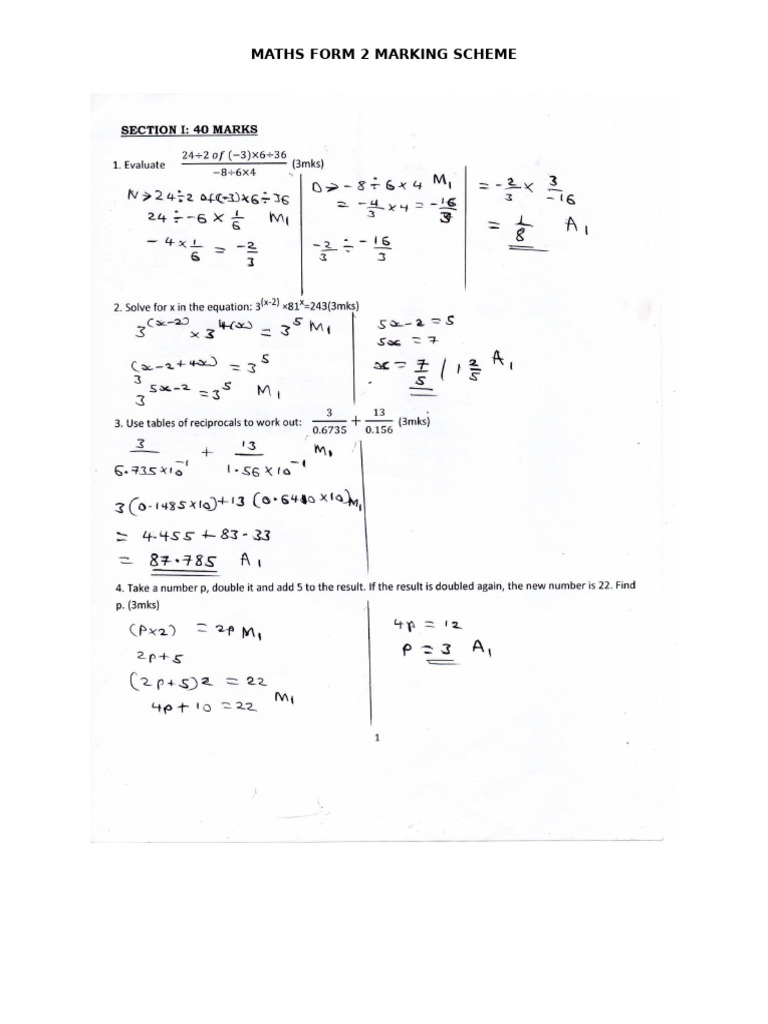 MATHS FORM 2 MARKING SCHEME
SECTION I: 40 MARKS
1. Evaluate (24÷2 of (−3)×6÷36)/(−8÷6×4) (3mks)
N → 24÷2 of (-3)×6÷36
24 ÷ -6 × 1/6 M1
- 4 × 1/6 = -2/3
D → - 8 ÷ 6 × 4 M1
= -4/3 × 4 = -16/3
-2/3 ÷ -16/3
= -2/3 × 3/-16
= 1/8 A1
2. Solve for x in the equation: 3^(x-2) ×81^x=243(3mks)
3^(x-2) × 3^4(x) = 3^5 M1
3^(x-2+4x) = 3^5
3^5x-2 = 3^5 M1
5x-2 = 5
5x = 7
x = 7/5 / 1 2/5 A1
3. Use tables of reciprocals to work out: 3/0.6735 + 13/0.156 (3mks)
3/6.735×10^-1 + 13/1.56×10^-1 M1
3(0.1485×10)+13(0.6410×10) M1
= 4.455 + 83.33
= 87.785 A1
4. Take a number p, double it and add 5 to the result. If the result is doubled again, the new number is 22. Find
p. (3mks)
(P×2) = 2p M1
2p+5
(2p+5)2 = 22
4p+10 = 22 M1
4p = 12
p = 3 A1
1